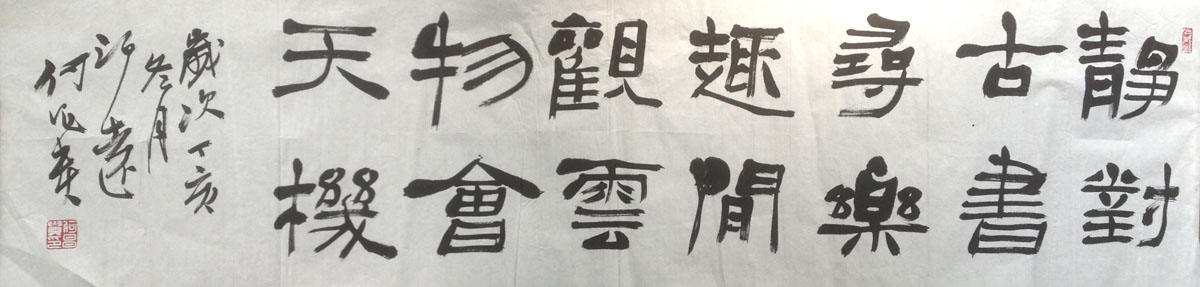 靜對
古書
尋樂
趣閒
觀雲
物會
天機
歲次丁亥
冬月
何